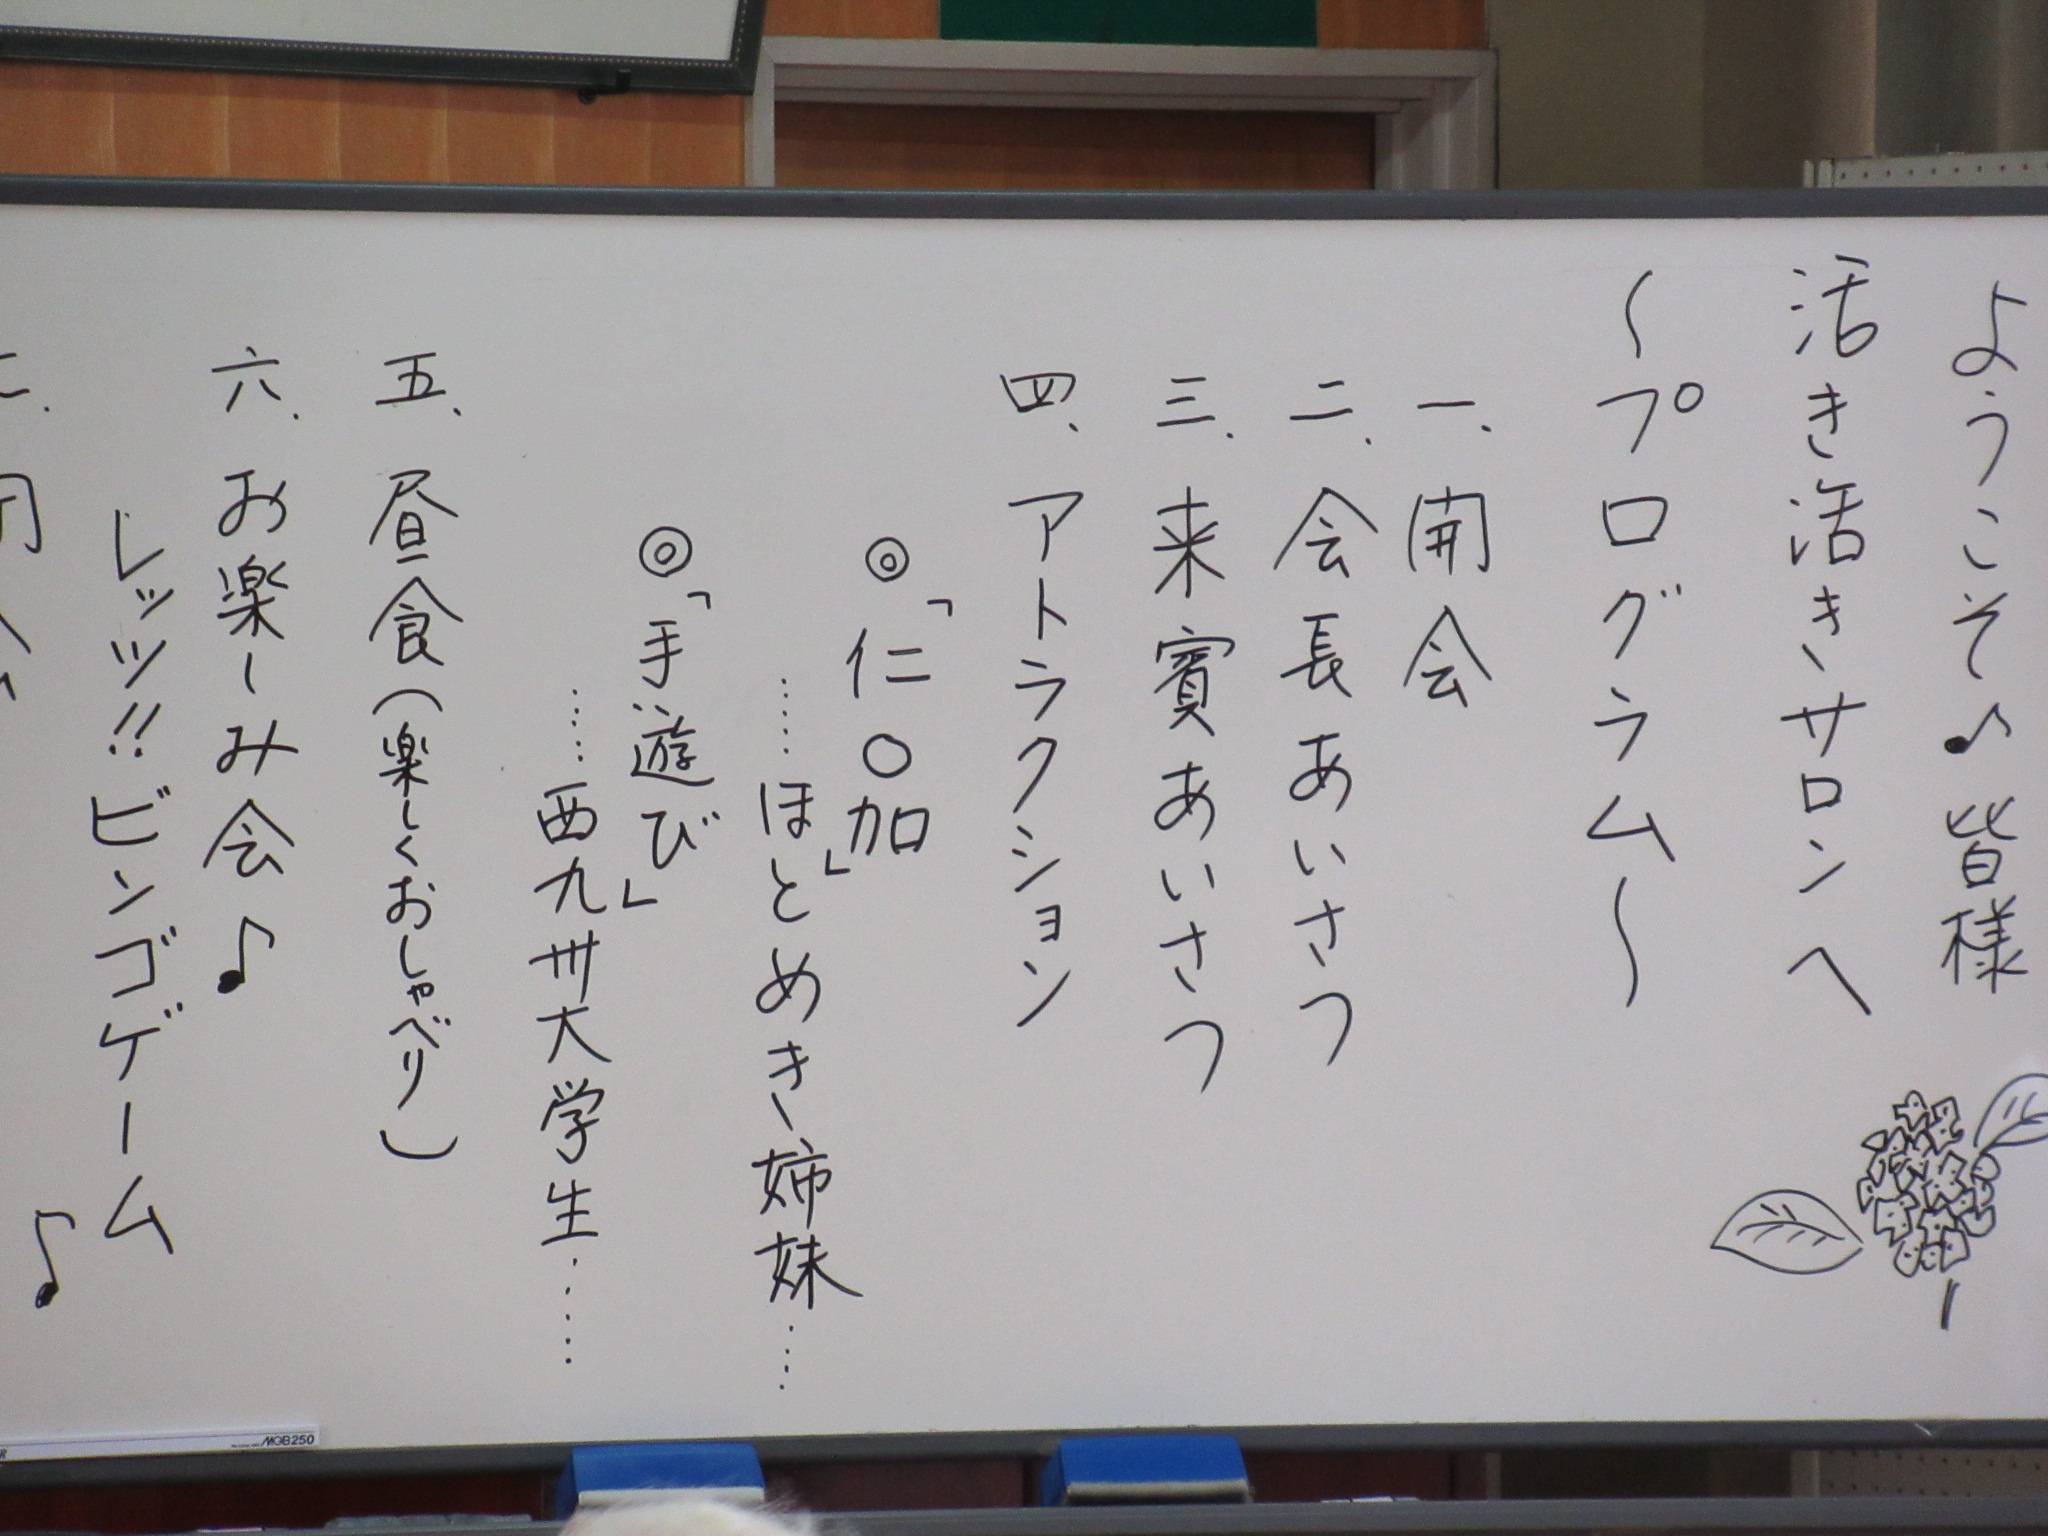 ようこそ♪皆様
活き活きサロンへ
〜プログラム〜
一、開会
二、会長あいさつ
三、来賓あいさつ
四、アトラクション
◎「仁○加」
……ほとめき姉妹……
◎「手遊び」
……西九州大学生……
五、昼食(楽しくおしゃべり)
六、お楽しみ会♪
レッツ!!ビンゴゲーム♪
MGB250